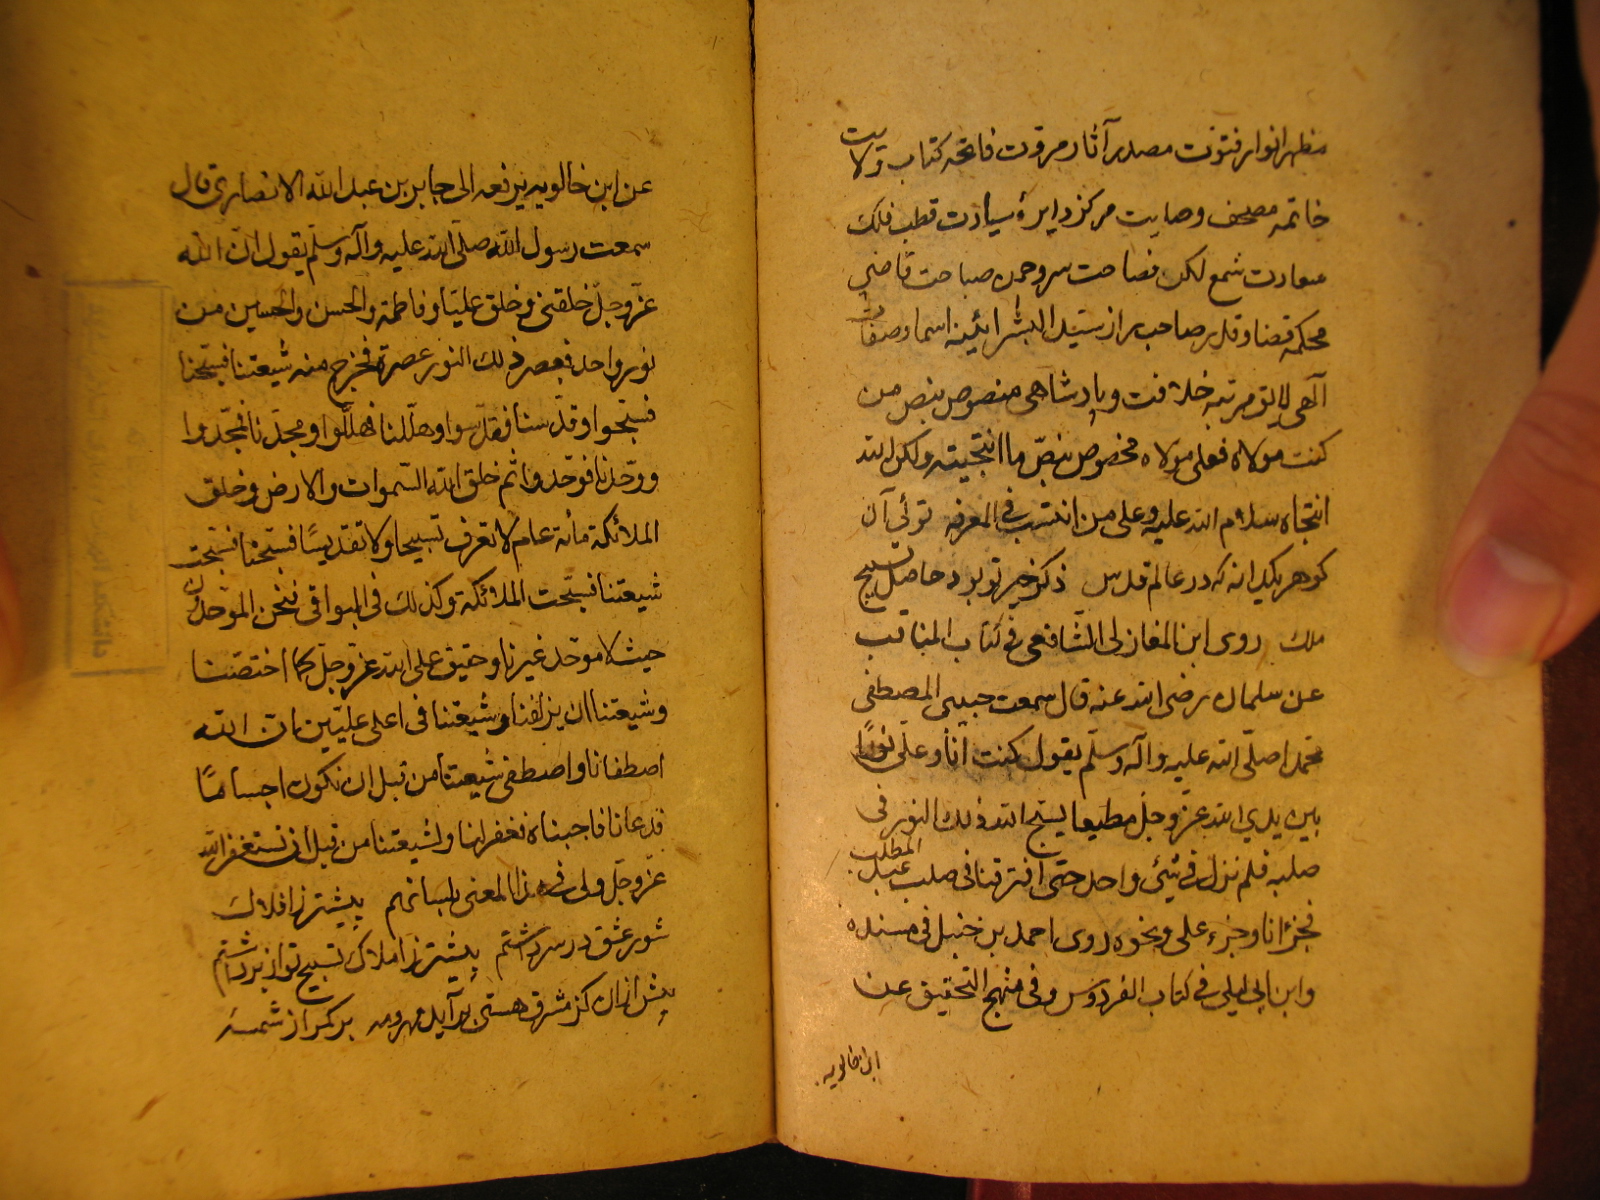 مظهر انوار فتوت مصدر آثار مروت فاتحه کتاب ولایت
خاتمه مصحف وصایت مرکز دایرهٔ سیادت قطب فلک
سعادت شمع لکن فصاحت سرو چمن صباحت قاضی
محکمه قضا و قدر صاحب راز سید البشر ایینه اسما و صفات
آلهی لایق مرتبه خلافت و پادشاهی منصوص بنص من
کنت مولاه فعلی مولاه مخصوص بنصّ ما انتجیته ولکن الله
انتجاه سلام الله علیه و علی من انتسب فی المعرفه توئی آن
کوهر یکدانه که در عالم قدس ذکر خیر تو بود حاصل تسبیح
ملک روی ابن المغازلی الشافعی فی کتاب المناقب
عن سلمان رضی الله عنه قال سمعت حبیبی المصطفی
محمدا صلّی الله علیه وآله وسلّم یقول کنت انا وعلی نورًا
بین یدی الله عزّ وجلّ مطیعا یسبّح الله ذلک النور فی
صلبه فلم نزل فی شیٔ واحد حتی افترقنا فی صلب عبد المطلب
فجزء انا وجزء علی ونحوه روی احمد بن حنبل فی مسنده
وابن ابی لیلی فی کتاب الفردوس وفی منهج التحقیق عن
ابن خالویه
عن ابن خالویه یرفعه الی جابر بن عبد الله الانصاری قال
سمعت رسول الله صلّی الله علیه وآله وسلّم یقول انّ الله
عزّ وجلّ خلقنی وخلق علیّا وفاطمة والحسن والحسین من
نور واحد فعصر ذلک النور عصرة فخرج منه شیعتنا فسبّحنا
فسبّحوا وقدّسنا فقدّسوا وهلّلنا فهلّلوا ومجّدنا فمجّدوا
ووحّدنا فوحّدوا ثم خلق الله السّموات والارض وخلق
الملائکة مائة عام لا تعرف تسبیحا ولا تقدیسًا فسبّحنا فسبّحت
شیعتنا فسبّحت الملائکة وکذلک فی البواقی فنحن الموحدون
حیث لا موحّد غیرنا وحقیق علی الله عزّ وجلّ کما اختصّنا
وشیعتنا ان یزلفنا وشیعتنا فی اعلی علیّین ان الله
اصطفانا واصطفی شیعتنا من قبل ان نکون اجسامًا
فدعانا فاجبناه فغفر لنا ولشیعتنا من قبل ان نستغفر الله
عزّ وجلّ ولی فی هذا المعنی بلسانهم پیشتر ز افلاک
شور عشق در سر داشتم پیشتر ز املاک تسبیح تو از بر داشتم
پیش از ان کز مشرق هستی بر آید مهر و مه بر کمر از شمسهٔ